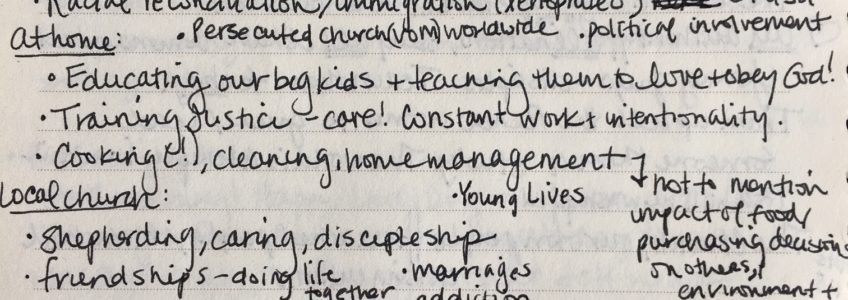 • Racial reconciliation/immigration (xenophobes)
at home: • Persecuted church (VOM) worldwide • political involvement
• Educating our big kids + teaching them to love + obey God!
• Training Justice - care! Constant work + intentionality.
• Cooking (!), cleaning, home management →
Local church: • Young Lives
not to mention
impact of food/
purchasing decisions
on others,
environment +
• Shepherding, caring, discipleship
• friendships - doing life together
• marriages
addiction